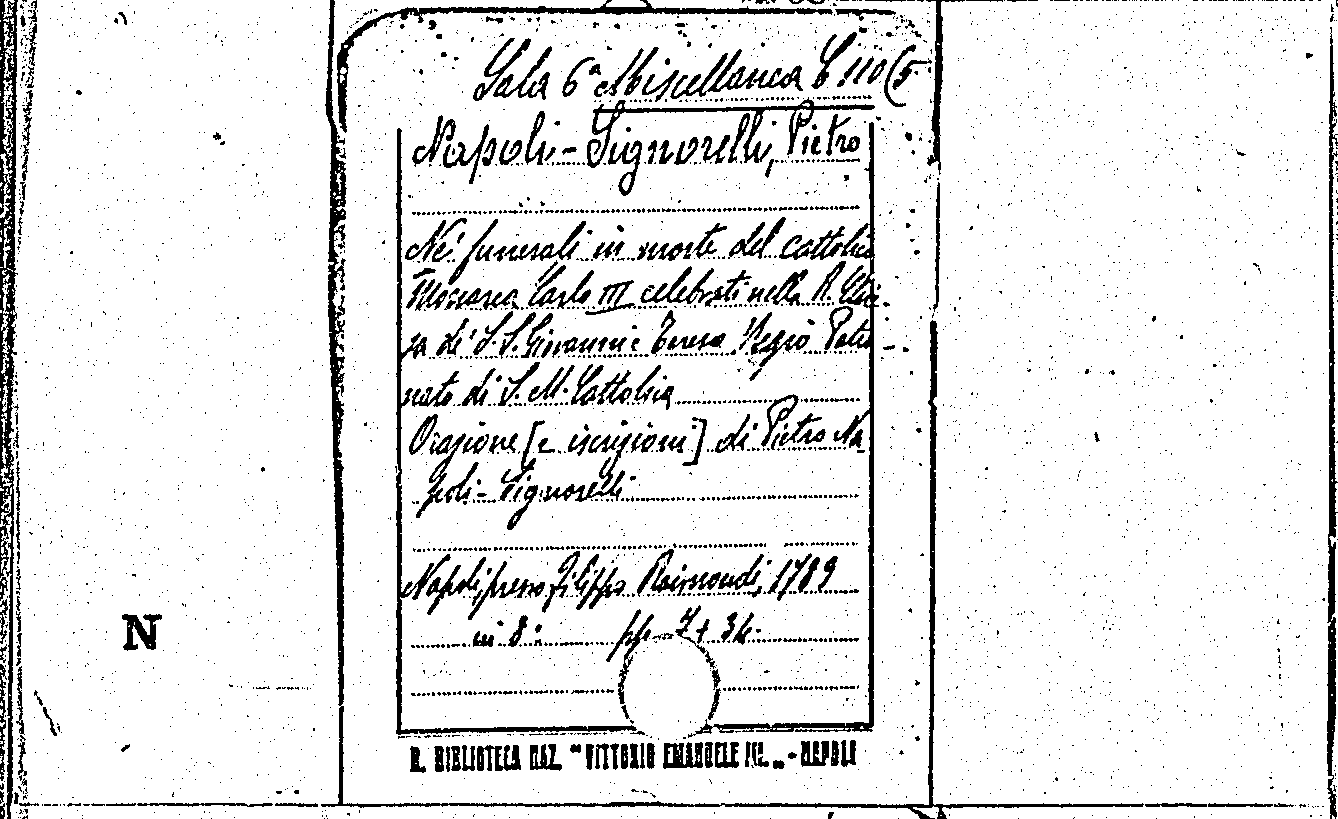 Sala 6ª Miscellanea C 110 (5
Napoli-Signorelli, Pietro
Nei funerali in morte del cattolico
Monarca Carlo III celebrati nella R. Chie-
sa di S.S. Giovanni e Teresa Regio Patro-
nato di S. M. Cattolica
Orazione [e iscrizioni] di Pietro Na-
poli-Signorelli
Napoli, presso Filippo Raimondi, 1789
in 8º pp. 7+
N
R. BIBLIOTECA NAZ. "VITTORIO EMANUELE III„ - NAPOLI